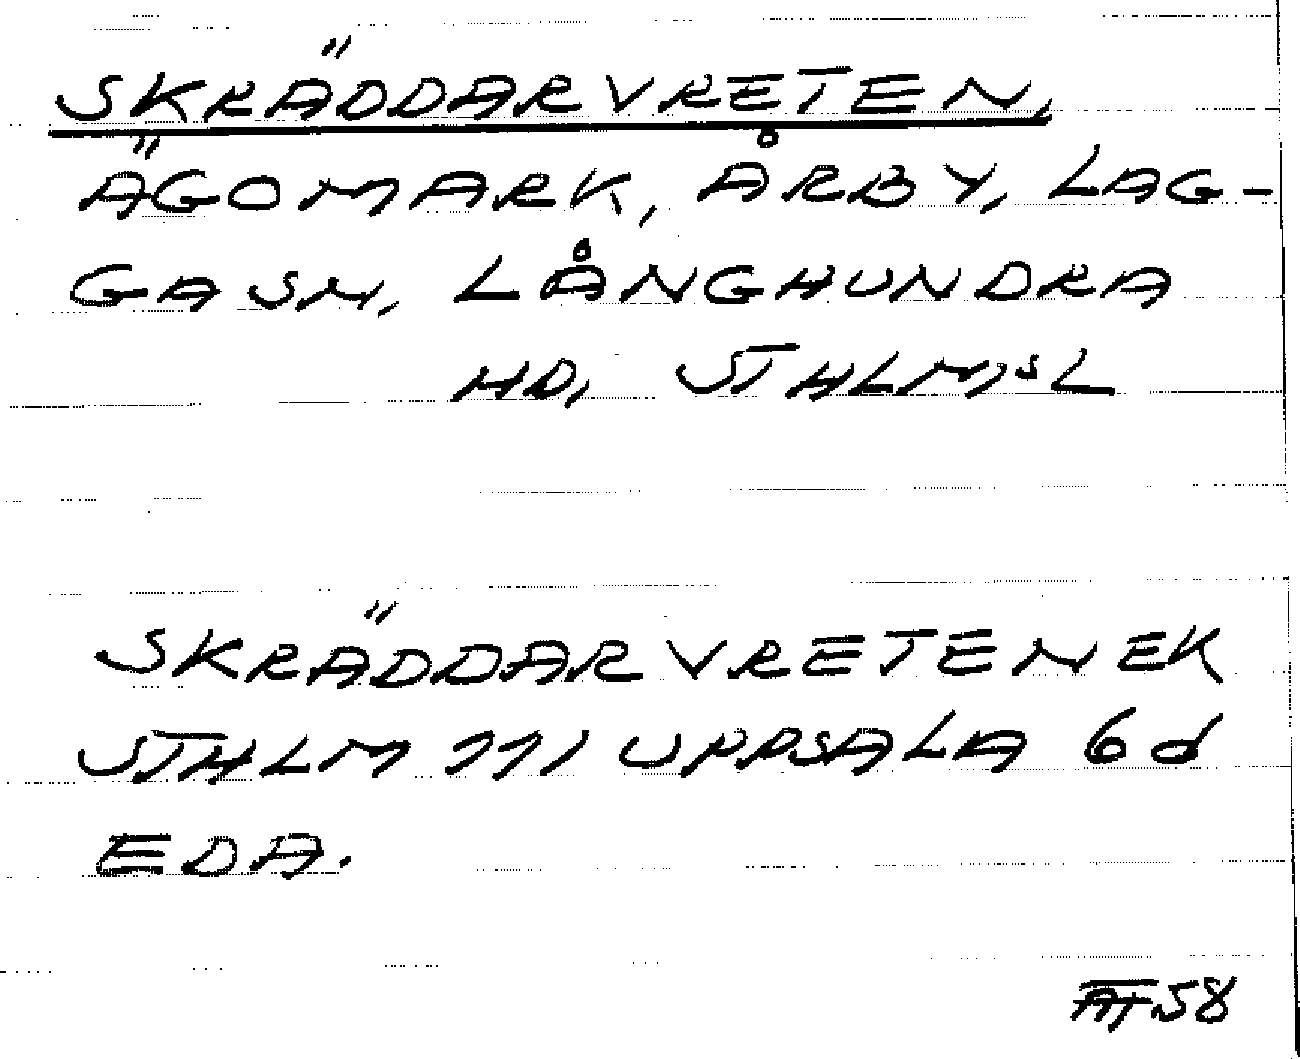 SKRÄDDARVRETEN,
ÄGOMARK, ÅRBY, LAG-
GA SN, LÅNGHUNDRA
HD, STHLMSL
SKRÄDDARVRETEN EK
STHLM 111 UPPSALA 6d
EDA.
AF 58